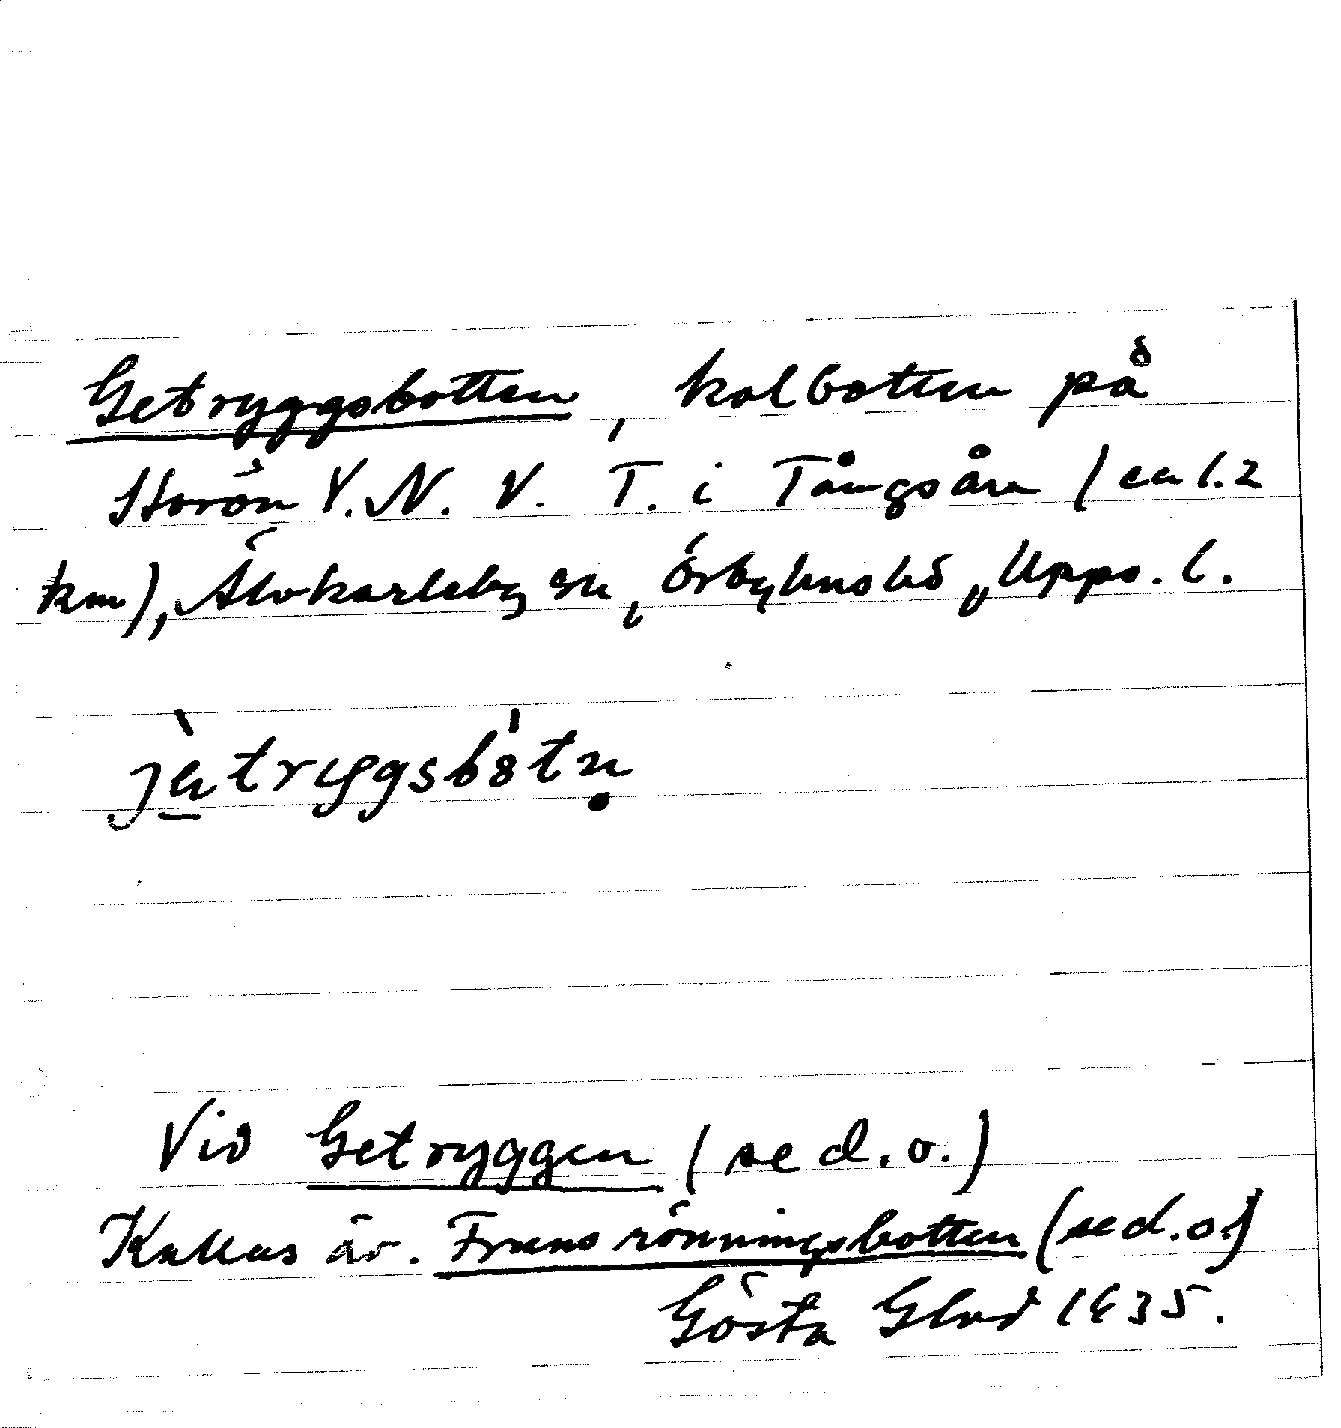 Getryggsbotten, kolbotten på
Storön V.N.V.T. i Tångsån (ca 1.2
km), Älvkarleby sn, Örbyhus hd, Upps. l.
jètryggsbótn̥
Vid Getryggen (se d.o.)
Kallas äv. Fransrönningsbotten (se d.o.)
Gösta Glad 1935.